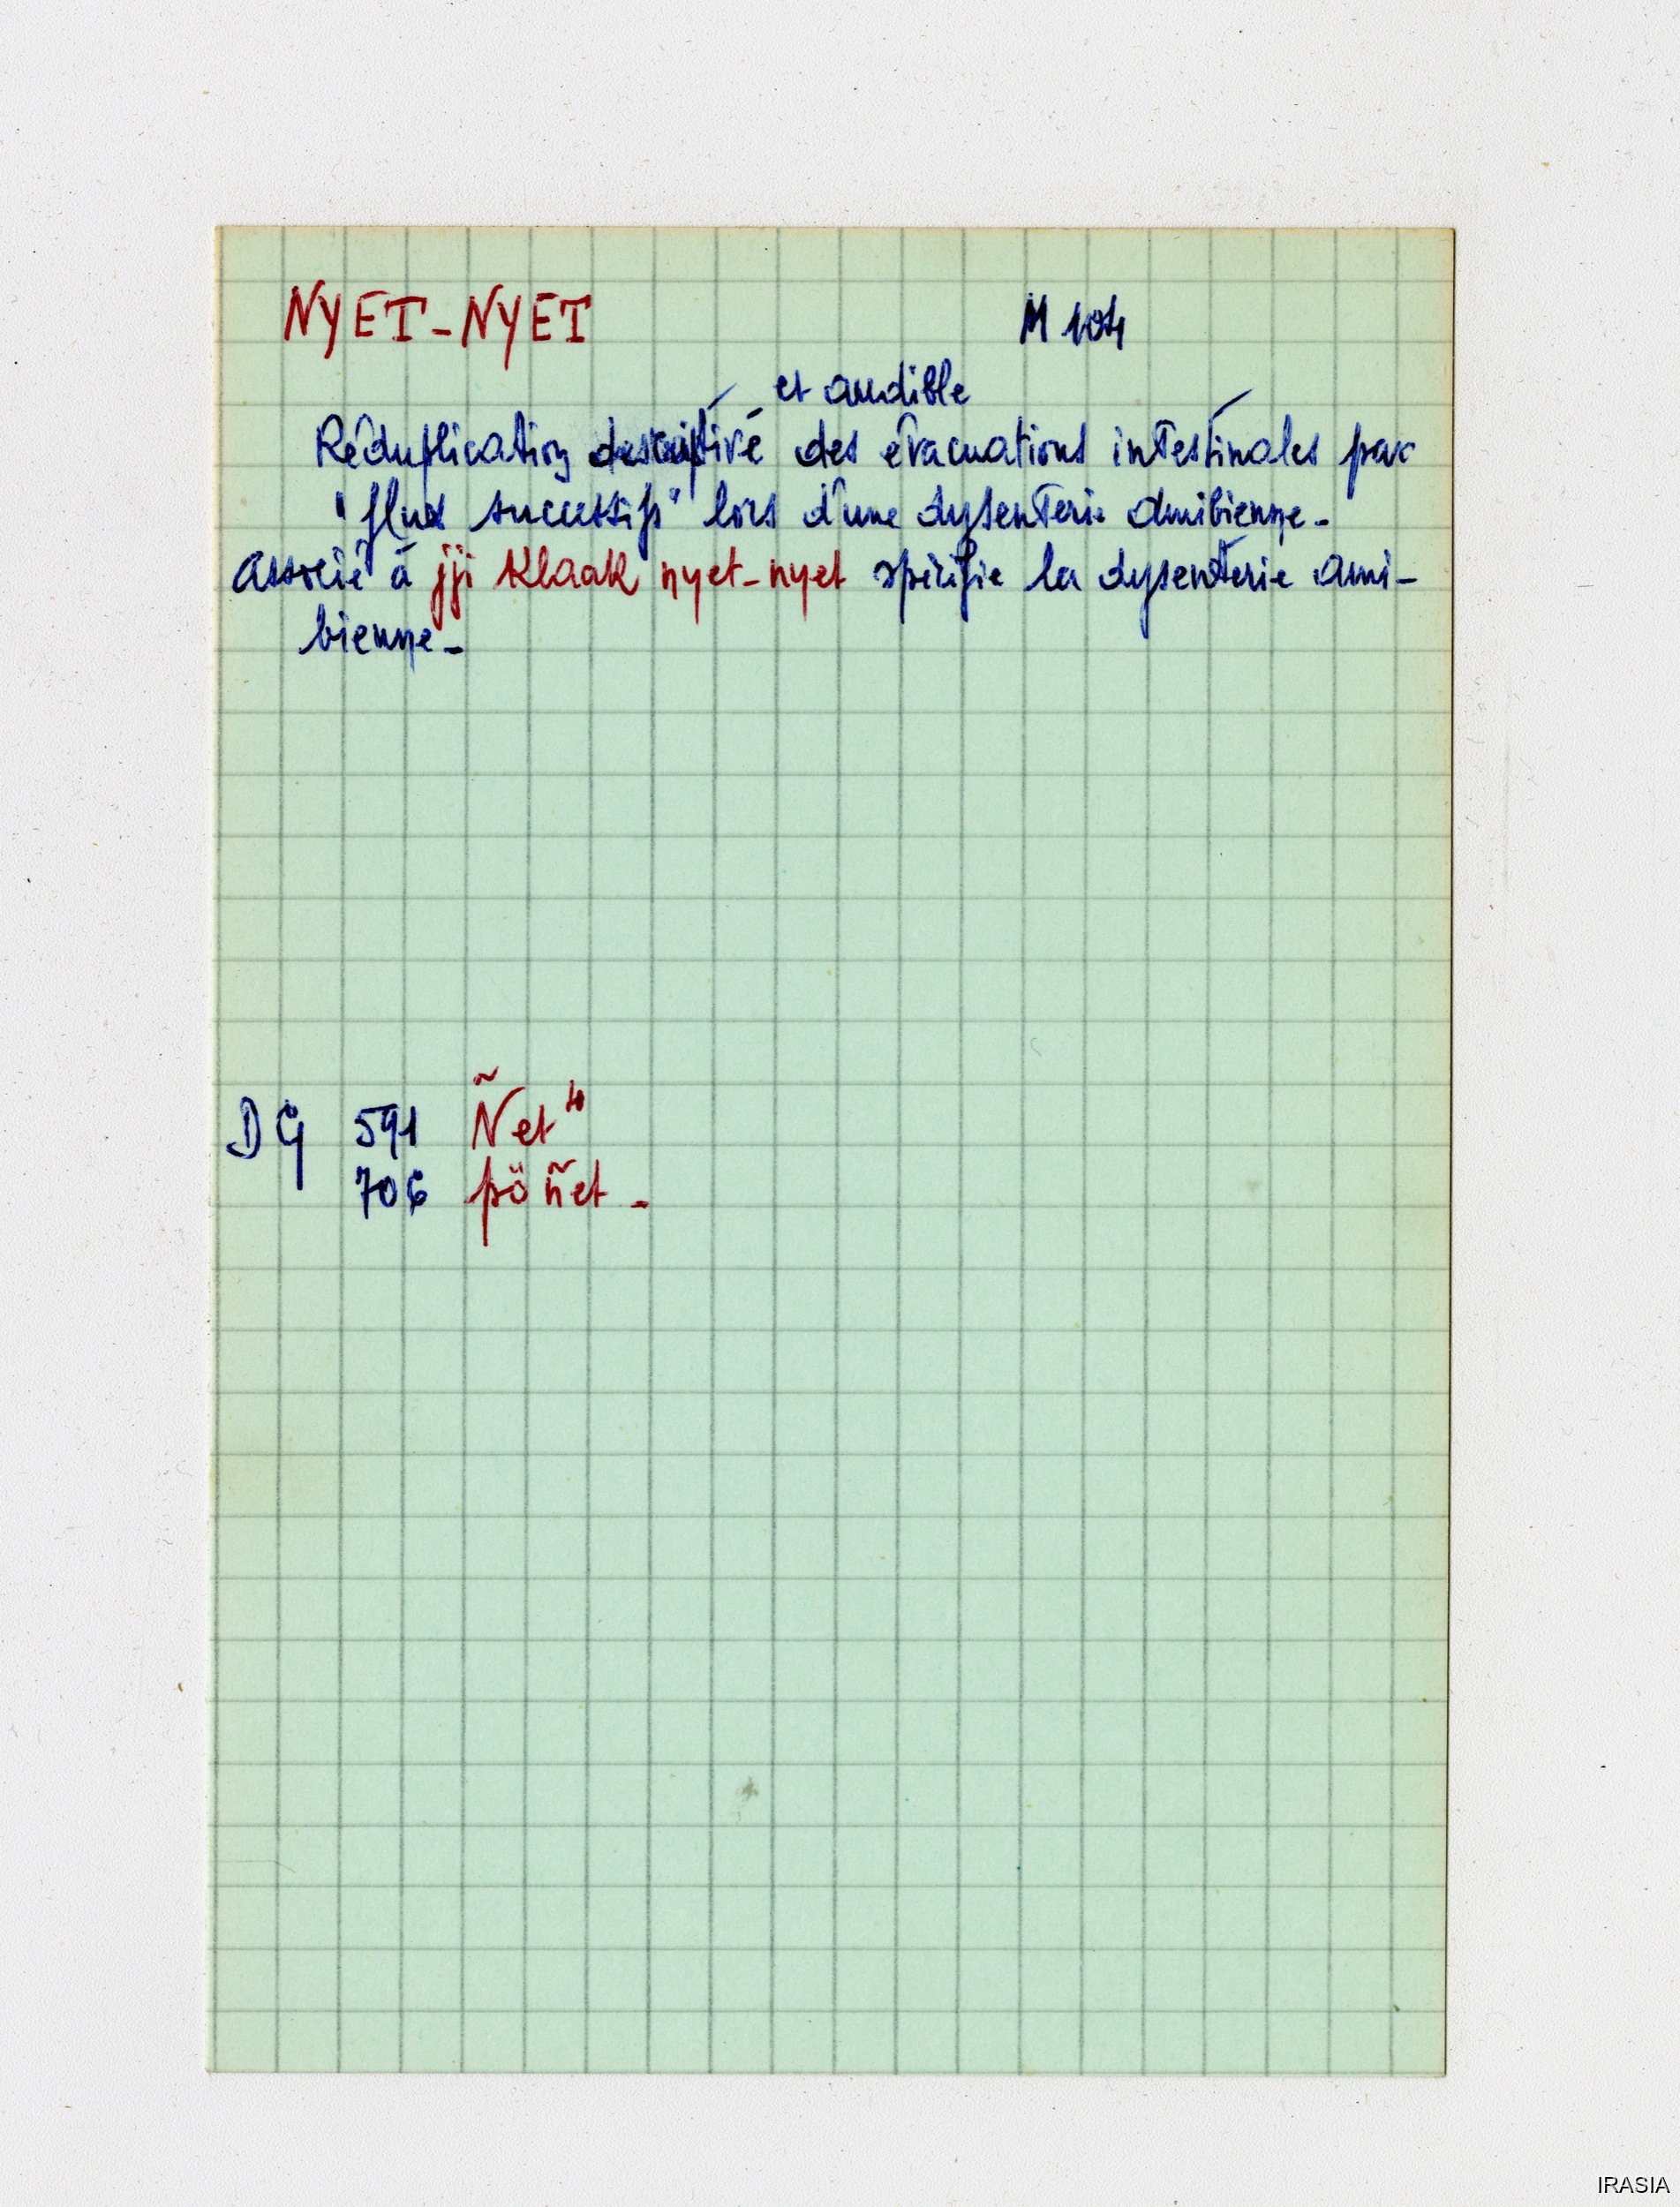 NYET-NYET M 104
et audible
Réduplication descriptive des évacuations intestinales par
"flux successifs" lors d'une dysenterie amibienne-
Associé à jji Klaak nyet-nyet spécifie la dysenterie ami-
bienne-
DG 591 Ñet⁴
706 pöñet-
IRASIA